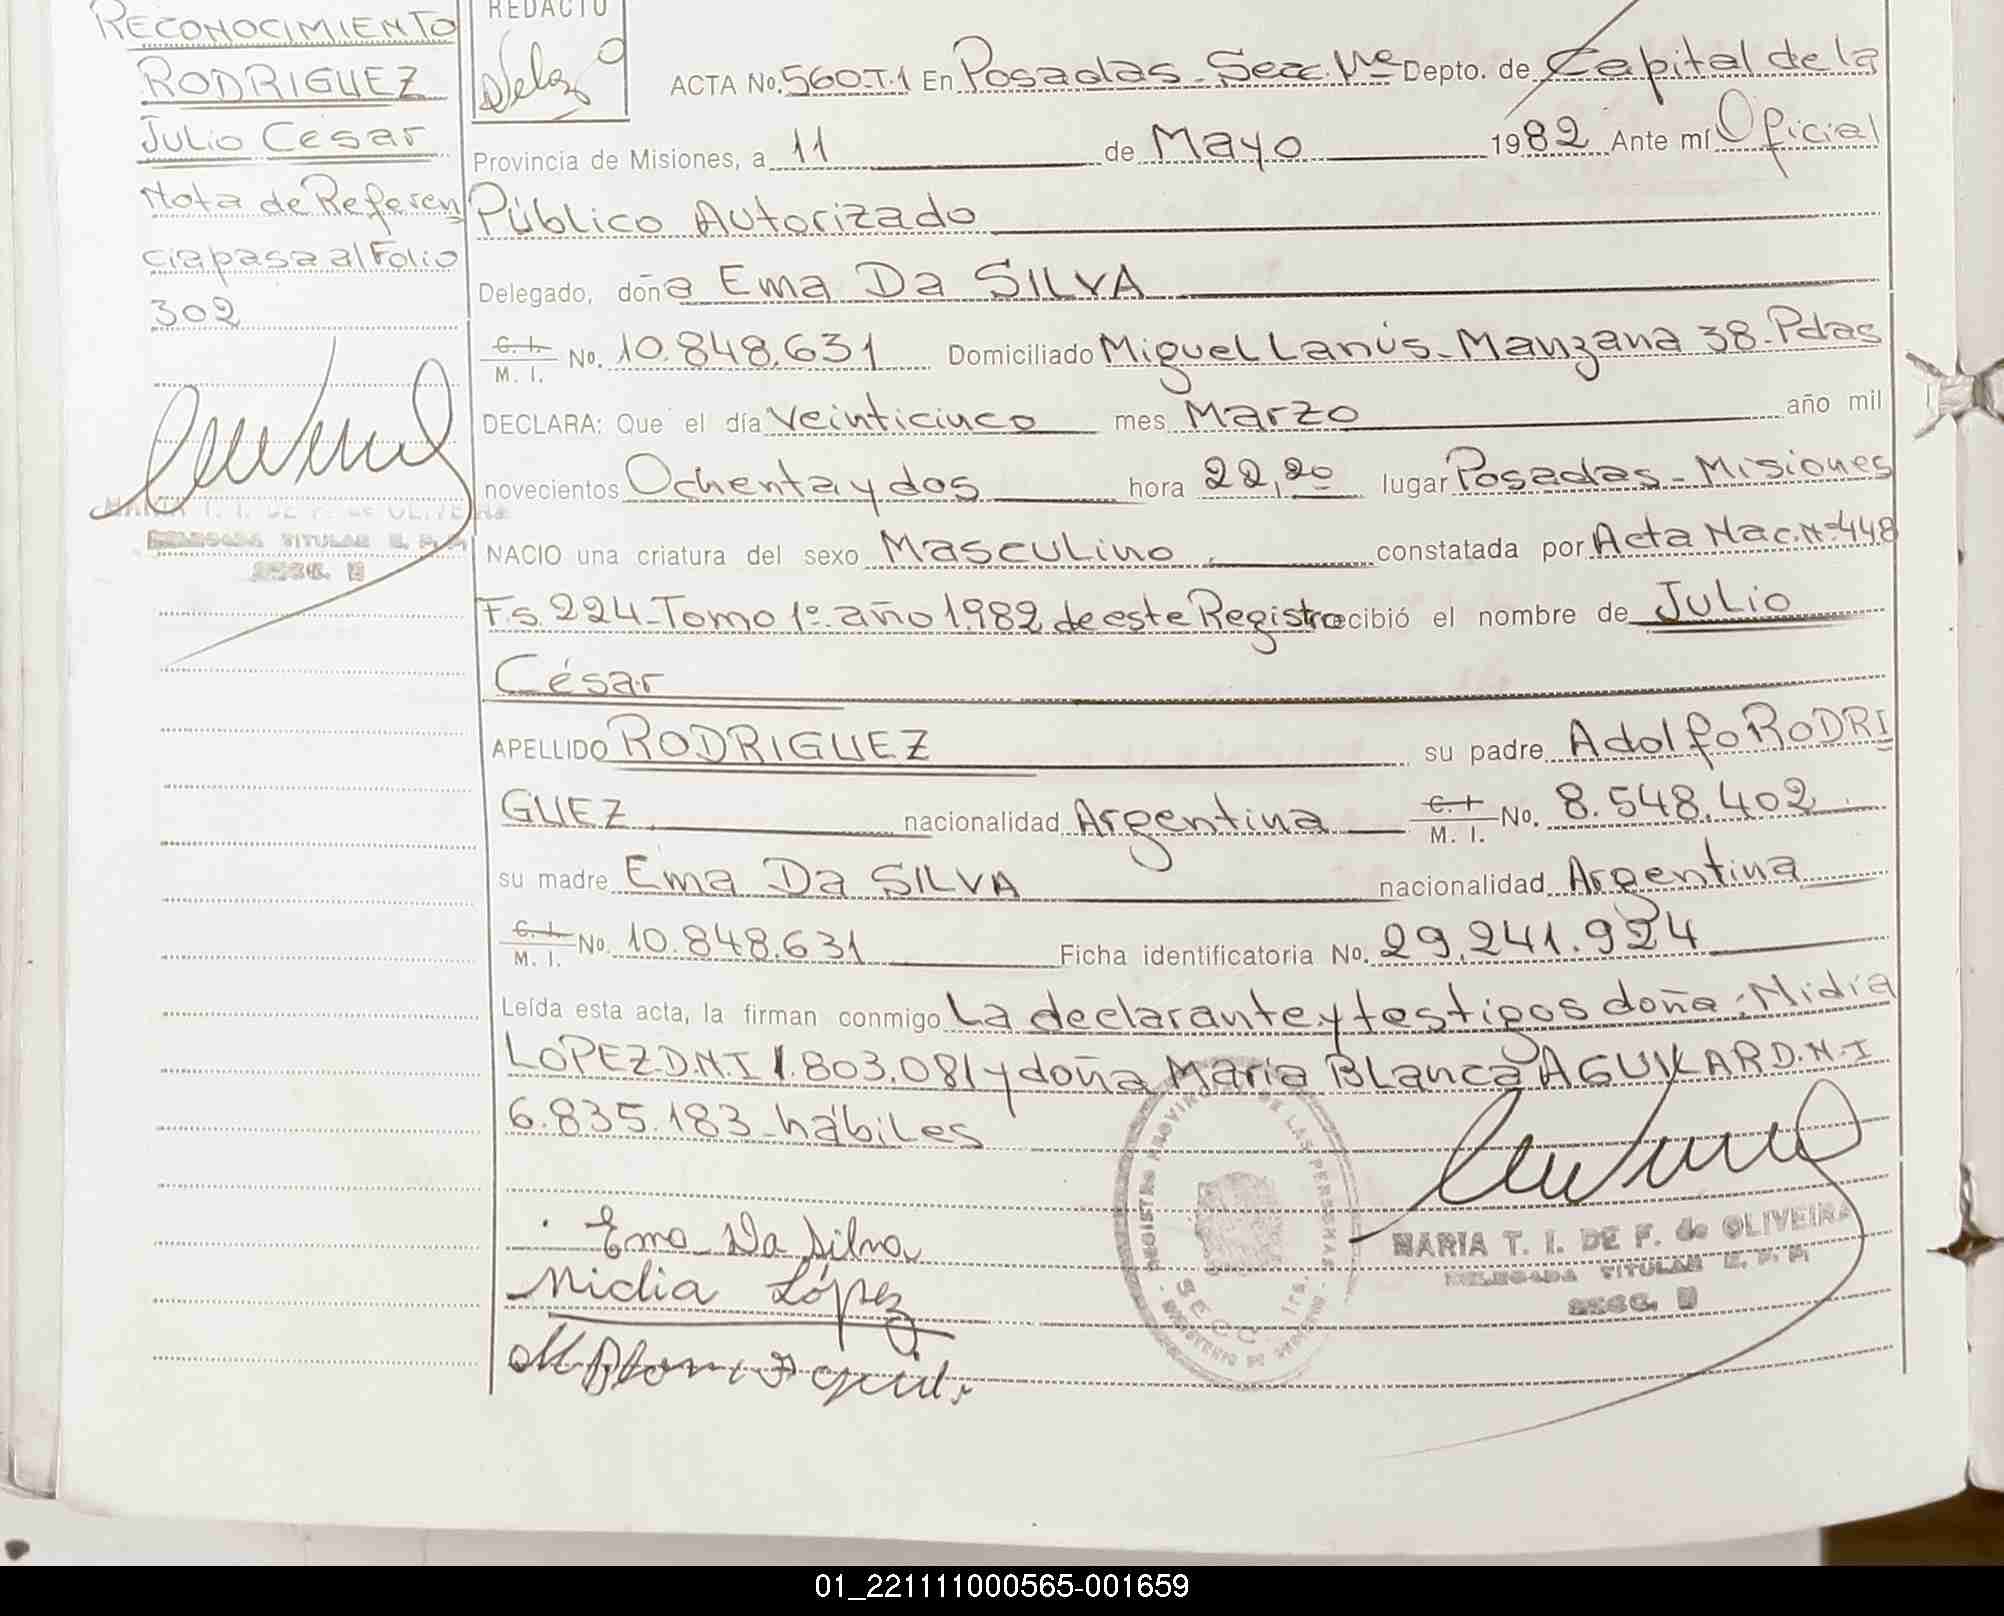 RECONOCIMIENTO
RODRIGUEZ
Julio César
Nota de Referen
cia pasa al Folio
302
MARIA T. I. DE F. de OLIVEIRA
DELEGADA TITULAR R. P. P.
SECC.
REDACTO
ACTA No. 560-T.1 En Posadas - Secc. Depto. de Capital de la
Provincia de Misiones, a 11 de Mayo 1982 Ante mí Oficial
Público Autorizado
Delegado, doña Ema Da SILVA
C. I. M. I. No. 10.848.631 Domiciliado Miguel Lanús - Manzana 38 - Pdas
DECLARA: Que el día veinticinco mes Marzo año mil
novecientos Ochenta y dos hora 22,20 lugar Posadas - Misiones
NACIO una criatura del sexo Masculino constatada por Acta Nac. Nº 448
Fs. 224 - Tomo 1º año 1982 de este Registro recibió el nombre de Julio
César
APELLIDO RODRIGUEZ su padre Adolfo RODRI
GUEZ nacionalidad Argentina C. I. M. I. No. 8.548.402
su madre Ema Da SILVA nacionalidad Argentina
C. I. M. I. No. 10.848.631 Ficha identificatoria No. 29.241.924
Leída esta acta, la firman conmigo La declarante y testigos doña: Nidia
LOPEZ D.N.I 1.803.081 y doña Maria Blanca AGUILAR D.N.I
6.835.183 - hábiles
Ema Da Silva
Nidia López
REGISTRO PROVINCIAL DE LAS PERSONAS
SECC. 1ra.
MARIA T. I. DE F. de OLIVEIRA
DELEGADA TITULAR R. P. P.
SECC.
01_221111000565-001659